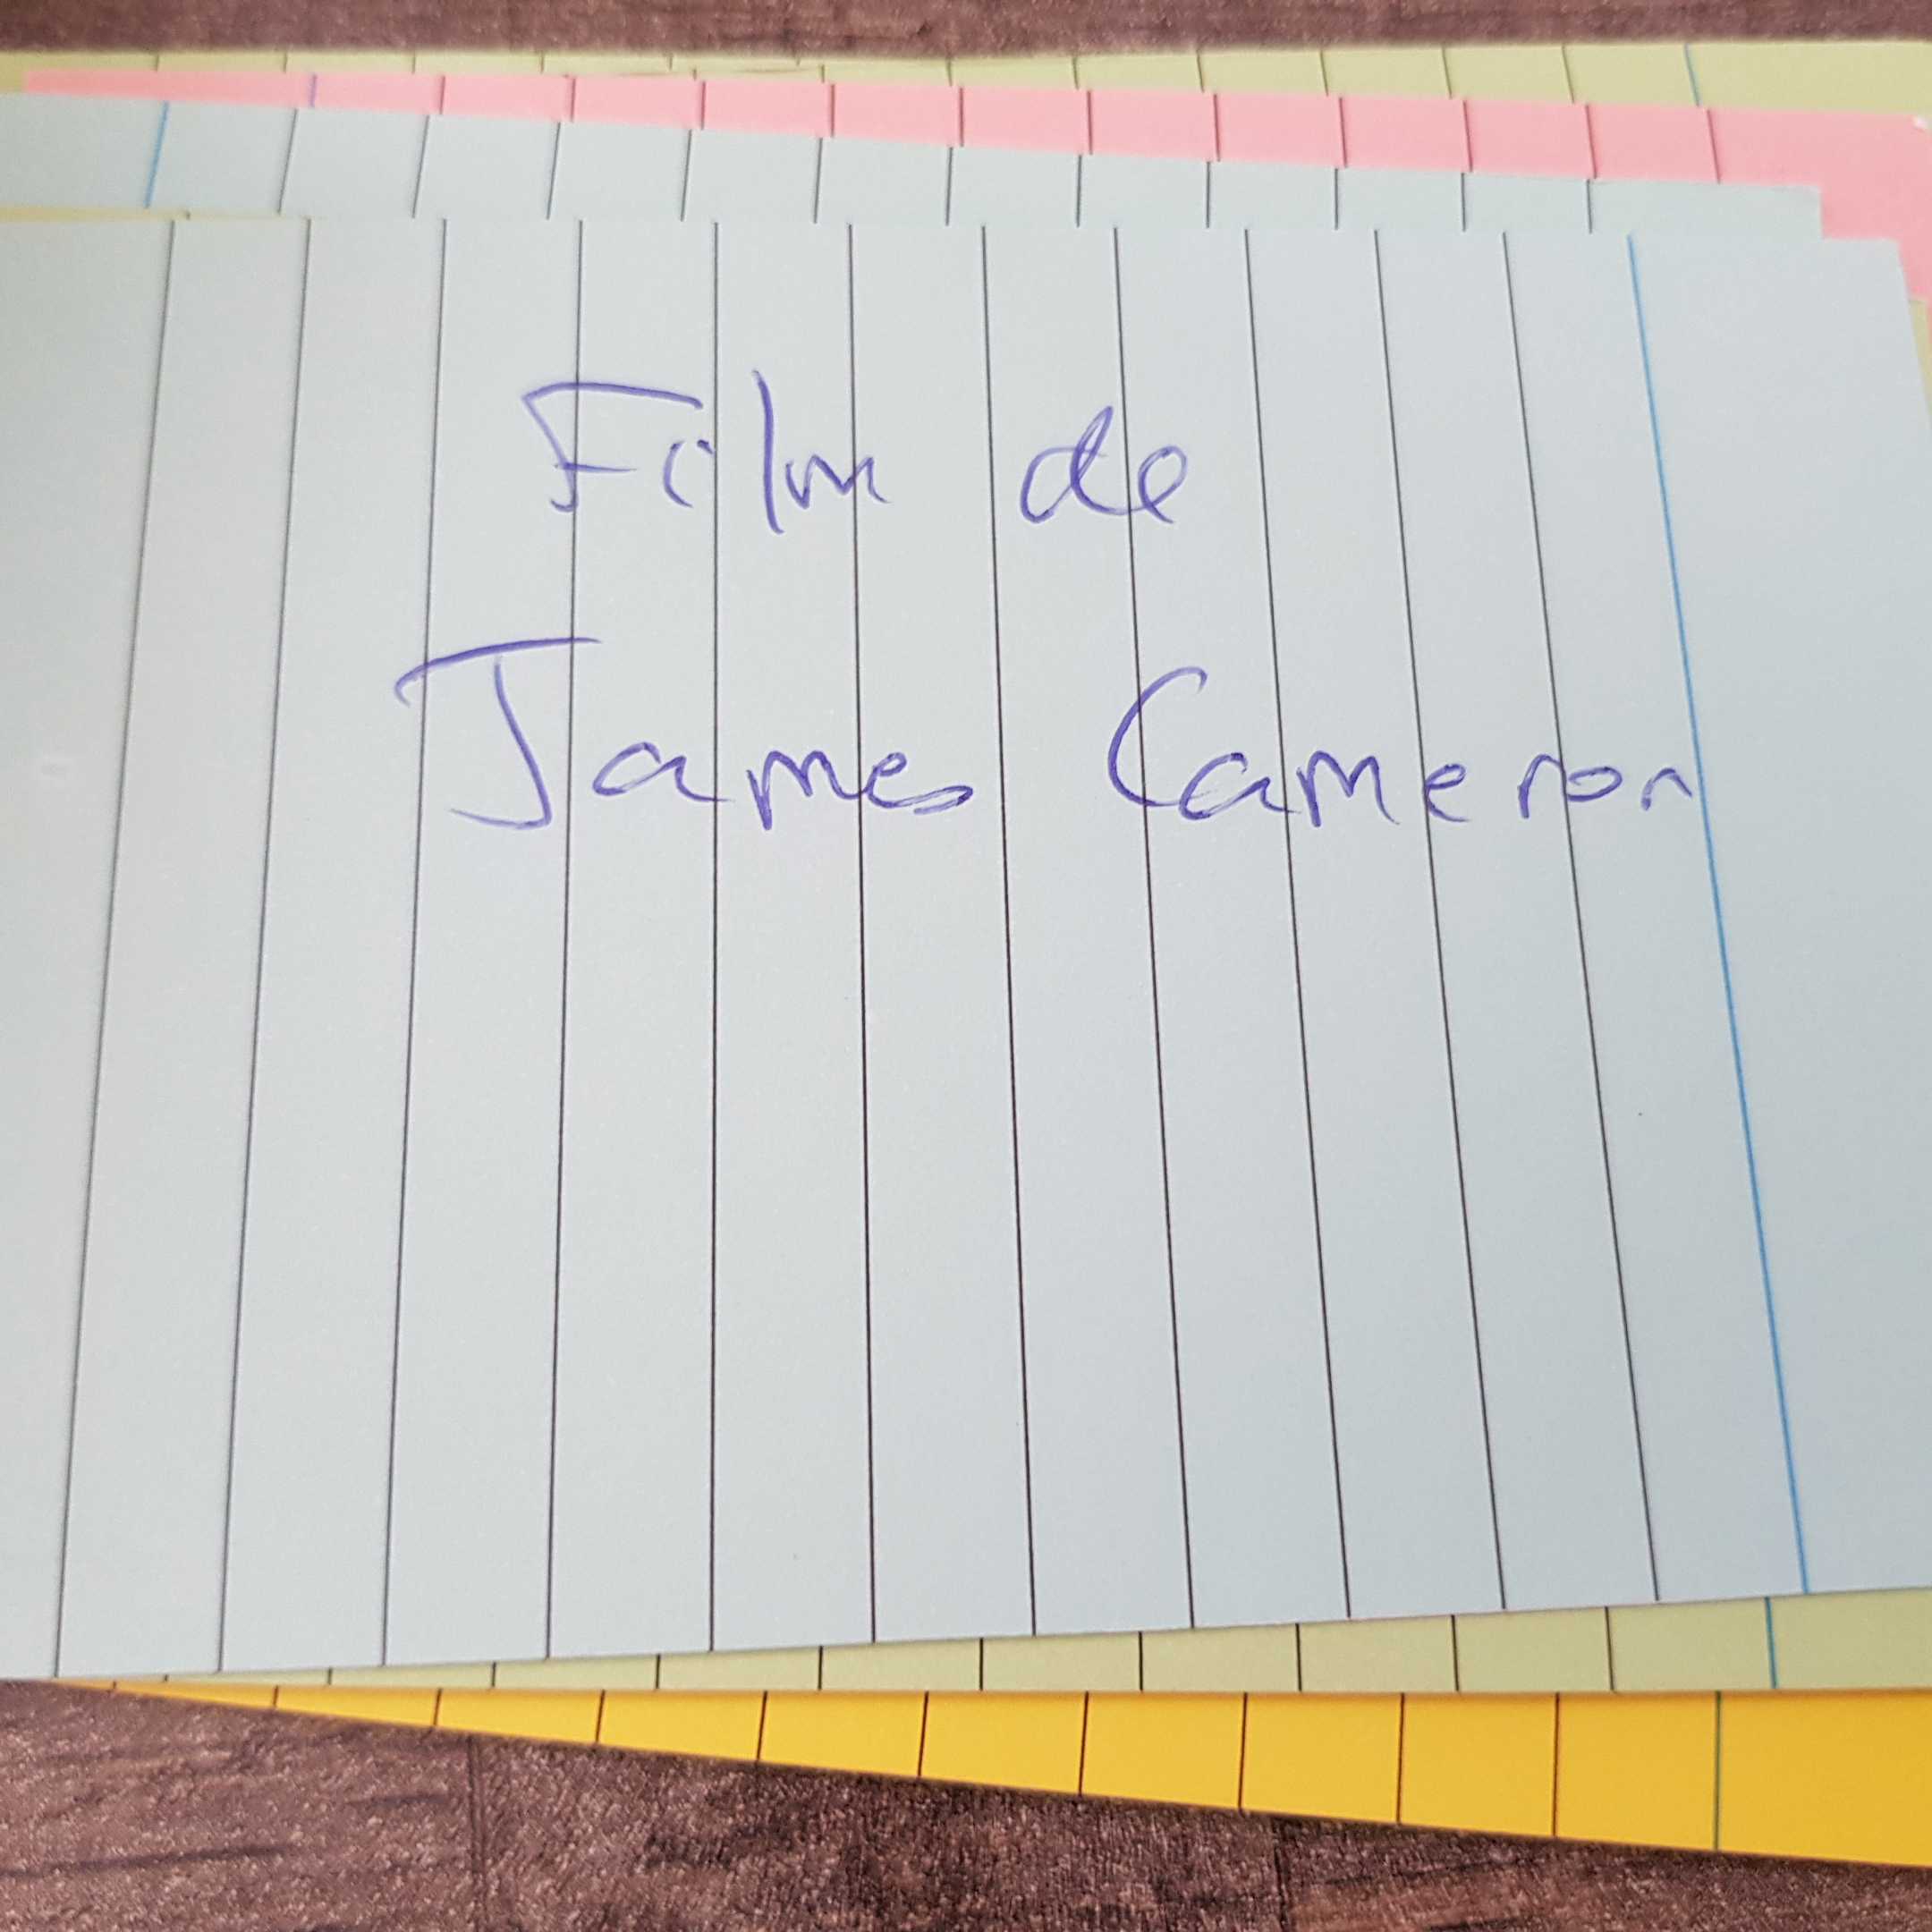 Film de
James Cameron